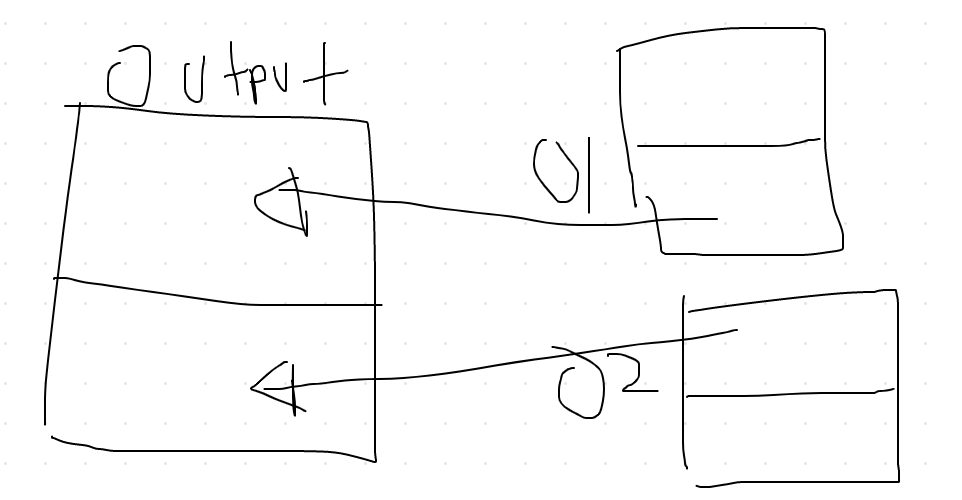 Output
01
02